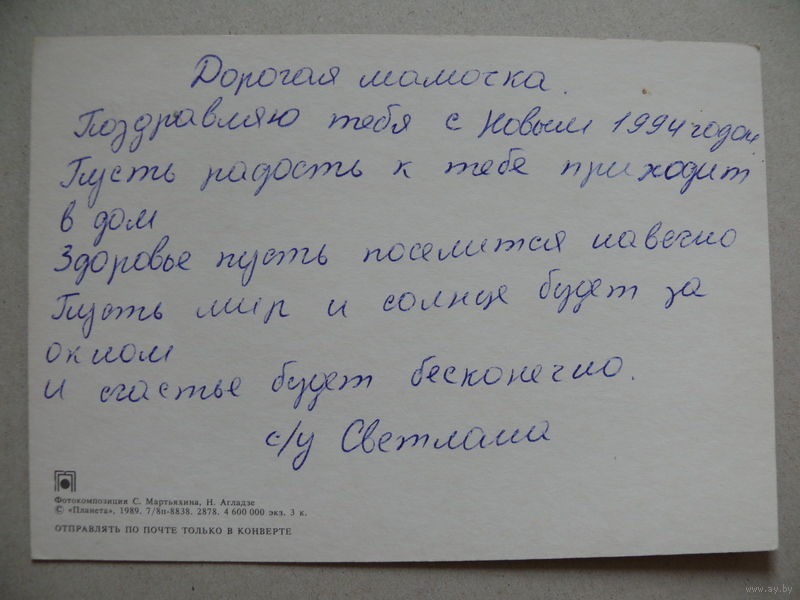 Дорогая мамочка.
Поздравляю тебя с Новым 1994 годом
Пусть радость к тебе приходит
в дом
Здоровье пусть поселится навечно
Пусть мир и солнце будет за
окном
и счастье будет бесконечно.
с/у Светлана
Фотокомпозиция С. Мартьяхина, Н. Агладзе
© «Планета», 1989. 7/8п-8838. 2878. 4 600 000 экз. 3 к.
ОТПРАВЛЯТЬ ПО ПОЧТЕ ТОЛЬКО В КОНВЕРТЕ
www.ay.by